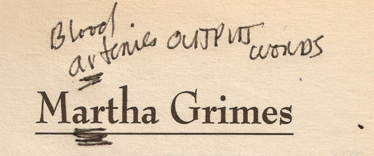 Blood
arteries OUTPUT WORDS
Martha Grimes